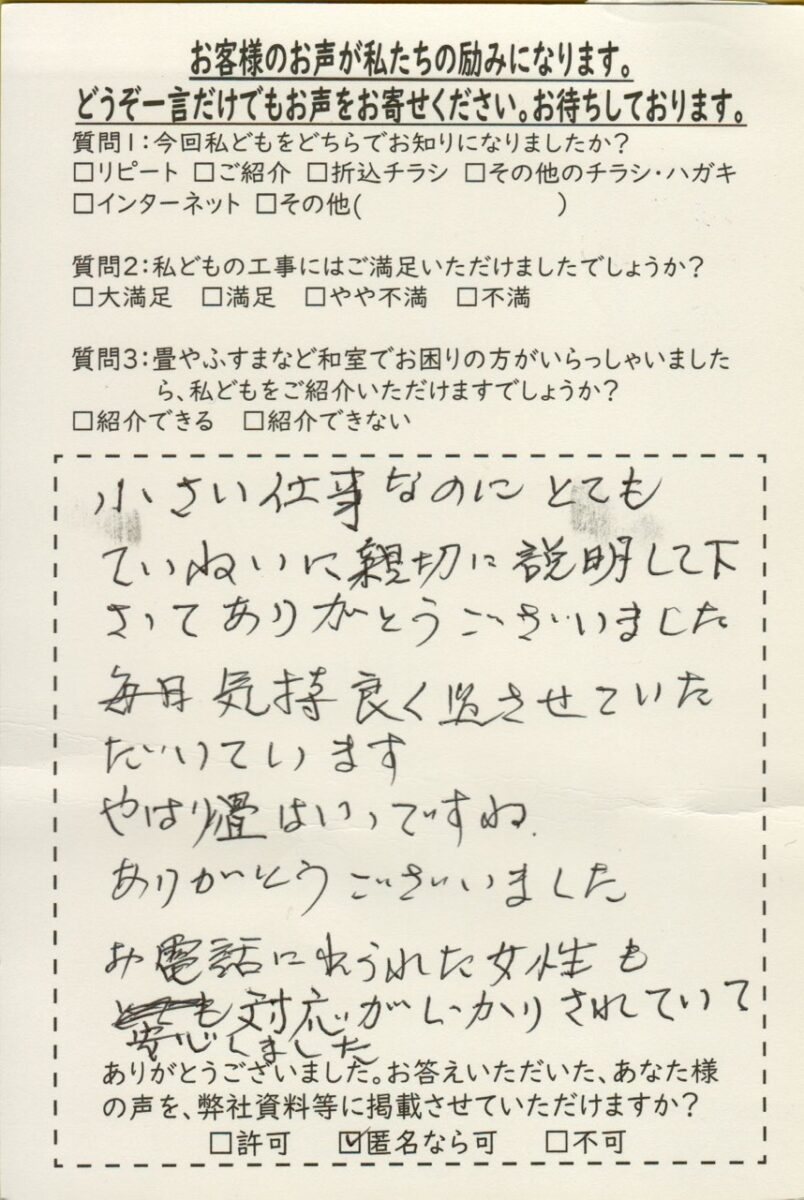 お客様のお声が私たちの励みになります。
どうぞ一言だけでもお声をお寄せください。お待ちしております。
質問1:今回私どもをどちらでお知りになりましたか?
□リピート □ご紹介 □折込チラシ □その他のチラシ・ハガキ
□インターネット □その他( )
質問2:私どもの工事にはご満足いただけましたでしょうか?
□大満足 □満足 □やや不満 □不満
質問3:畳やふすまなど和室でお困りの方がいらっしゃいました
ら、私どもをご紹介いただけますでしょうか?
□紹介できる □紹介できない
小さい仕事なのにとても
ていねいに親切に説明して下
さってありがとうございました
毎日気持良く過させていた
だいています
やはり畳はいいですね
ありがとうございました
お電話に出られた女性も
対応がしっかりされていて
安心しました
ありがとうございました。お答えいただいた、あなた様
の声を、弊社資料等に掲載させていただけますか?
□許可 ☑匿名なら可 □不可